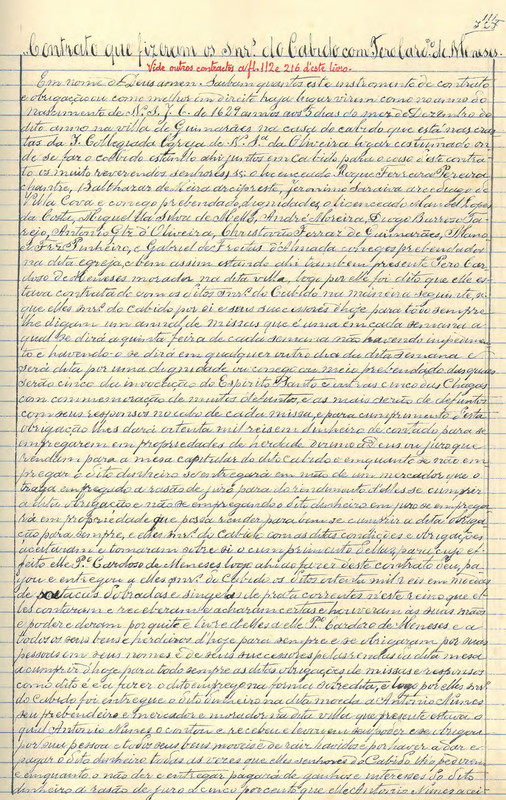 Contrato que fizeram os Snr.es do Cabido com Pero Card.º de Meneses.
Vide outros contractos a fl. 112 e 216 d'este livro.
Em nome de Deus amen. Saibam quantos este instromento de contrato
e obrigação ou como melhor em direito haja lugar virem como no anno do
nascimento de N. S. J. C. de 1629 annos aos 5 dias do mez de Dezembro do
dito anno na villa de Guimarães na casa do cabido que está nas cras
tas da I. Collegiada Egreja de N. Sr.a da Oliveira lugar costumado on
de se faz o cabido estando ahi juntos em Cabido para o caso d'este contra
to os muito reverendos senhores, o licenceado Roque Ferreira Pereira
chantre, Balthazar de Meira arcipreste, Jeronimo Saraiva arcediago de
Villa Cova e conego prebendado, dignidades, o licenceado Manoel Lopes
da Costa, Miguel da Silva de Mello, André Moreira, Diogo Barroso Ta
rejo, Antonio Glz d'Oliveira, Christovão Ferraz de Guimarães,
Frz Pinheiro, e Gabriel de Freitas d'Almada conegos prebendados
na dita egreja, e bem assim estando ahi tambem presente Pero Car
doso de Meneses morador na dita villa, logo por elle foi dito que elle es
tava contratado com os ditos snr.es do Cabido na maneira seguinte,
que elles snr.es do cabido por si e seus sucessores d'hoje para todo sempre
lhe digam um annal de missas que é uma em cada semana a
qual se dirá a quinta feira de cada semana não havendo impedimen
to e havendo-o se dirá em qualquer outro dia da dita semana e
será dita por uma dignidade ou conego ou meio prebendado das quaes
serão cinco da invocação do Espirito Santo e outras cinco das Chagas
com commemoração de muitos defuntos, e as mais serão de defuntos
com seus responsos no cabo de cada missa, e para cumprimento d'esta
obrigação lhes dará oitenta mil reis em dinheiro de contado para se
empregarem em propriedades de herdade dizimo a Deus ou juro que
rendam para a mesa capitular do dito cabido e emquanto se não em
pregar o dito dinheiro se entregará em mão de um mercador que o
traga empregado a rasão de juro para do rendimento d'elles se cumprir
a dita obrigação e não se empregando o dito dinheiro em juro se emprega
rá em propriedade que possa render para bem se cumprir a dita obriga
ção para sempre, e elles snr.es do Cabido com as ditas condições e obrigações
aceitaram e tomaram sobre si o cumprimento d'ellas, para cujo ef
feito elle P.º Cardoso de Meneses logo ahi ao fazer deste contrato deu, pa
gou e entregou a elles snr.es do Cabido os ditos oitenta mil reis em moedas
de patacas dobradas e singelas de prata correntes n'este reino que el
les contaram e receberam e acharam certas e houveram ás suas mãos
e poder e deram por quite e livre d'elles a elle P.º Cardoso de Meneses e a
todos os seus bens e herdeiros d'hoje para sempre e se obrigaram por suas
pessoas em seus nomes e de seus successores pelas rendas da dita mesa
a cumprir d'hoje para todo sempre as ditas obrigações de missas e responsos
como dito é e a fazer o dito emprego na forma sobredita, e logo por elles snr.es
do Cabido foi entregue o dito dinheiro na dita moeda a Antonio Nunes
seu prebendeiro e mercador e morador na dita villa que presente estava o
qual Antonio Nunes o contou e recebeu e levou em seu poder e se obrigou
por sua pessoa e todos seus bens moveis e de raiz havidos e por haver a dar e
pagar o dito dinheiro todas as vezes que elles senhores do Cabido lho pedirem
e emquanto o não der e entregar pagará de ganhos e interesses do dito
dinheiro a rasão de juro de cinco por cento que elle Antonio Nunes acei